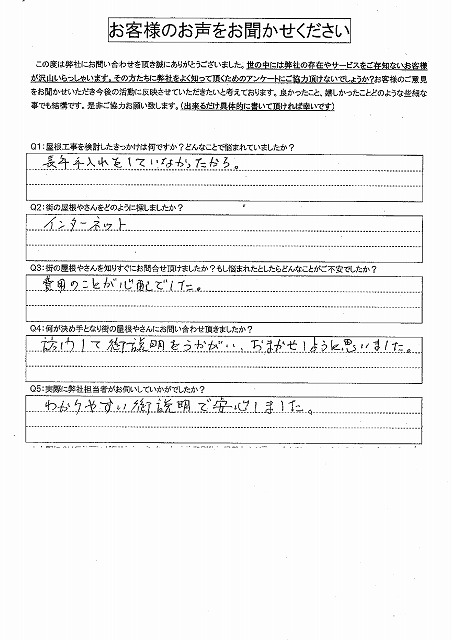 お客様のお声をお聞かせください
この度は弊社にお問い合わせを頂き誠にありがとうございました。世の中には弊社の存在やサービスをご存知ないお客様
が沢山いらっしゃいます。その方たちに弊社をよく知って頂くためのアンケートにご協力頂けないでしょうか？お客様のご意見
をお聞かせいただき今後の活動に反映させていただきたいと考えております。良かったこと、嬉しかったことどのような些細な
事でも結構です。是非ご協力お願い致します。（出来るだけ具体的に書いて頂ければ幸いです）
Q1：屋根工事を検討したきっかけは何ですか？どんなことで悩まれていましたか？
長年手入れをしていなかったから。
Q2：街の屋根やさんをどのように探しましたか？
インターネット
Q3：街の屋根やさんを知りすぐにお問合せ頂けましたか？もし悩まれたとしたらどんなことがご不安でしたか？
費用のことが心配でした。
Q4：何が決め手となり街の屋根やさんにお問い合わせ頂きましたか？
訪问して御説明をうかがい、おまかせしようと思いました。
Q5：実際に弊社担当者がお伺いしていかがでしたか？
わかりやすい御説明で安心しました。